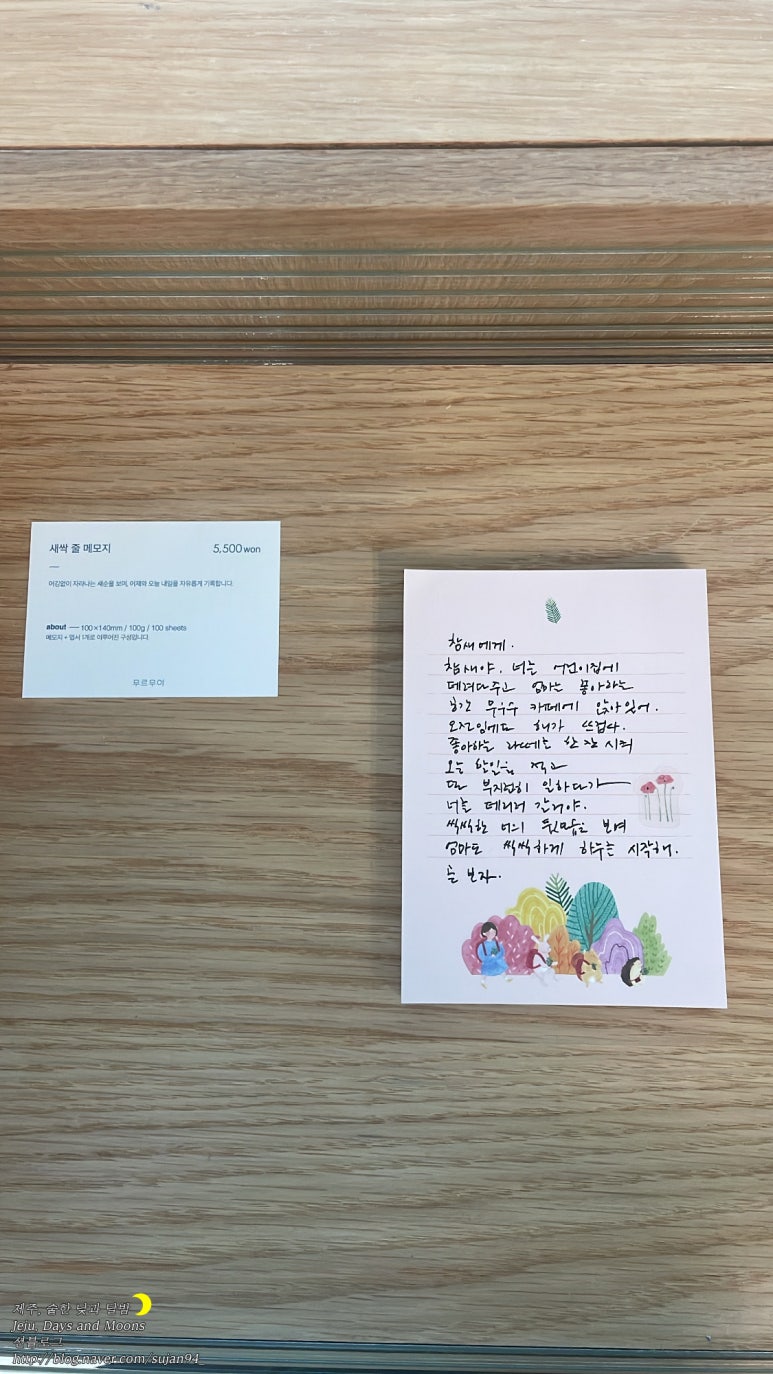 새싹 줄 메모지
5,500 won
어김없이 자라나는 새순을 보며, 어제와 오늘 내일을 자유롭게 기록합니다.
about — 100×140mm / 100g / 100 sheets
메모지 + 엽서 1개로 이루어진 구성입니다.
무르무이
참새에게.
참새야. 너는 어린이집에
데려다주고 엄마는 좋아하는
카페에 앉아있어.
오전임에도 해가 뜨겁다.
좋아하는 라떼는 한 잔 시켜
오늘 할일을 적고
부지런히 일하다가
너를 데리러 갈거야.
씩씩한 너의 뒷모습을 보며
엄마도 씩씩하게 하루를 시작해.
보자.
제주, 숱한 낮과 달밤
Jeju, Days and Moons
http://blog.naver.com/sujan94_